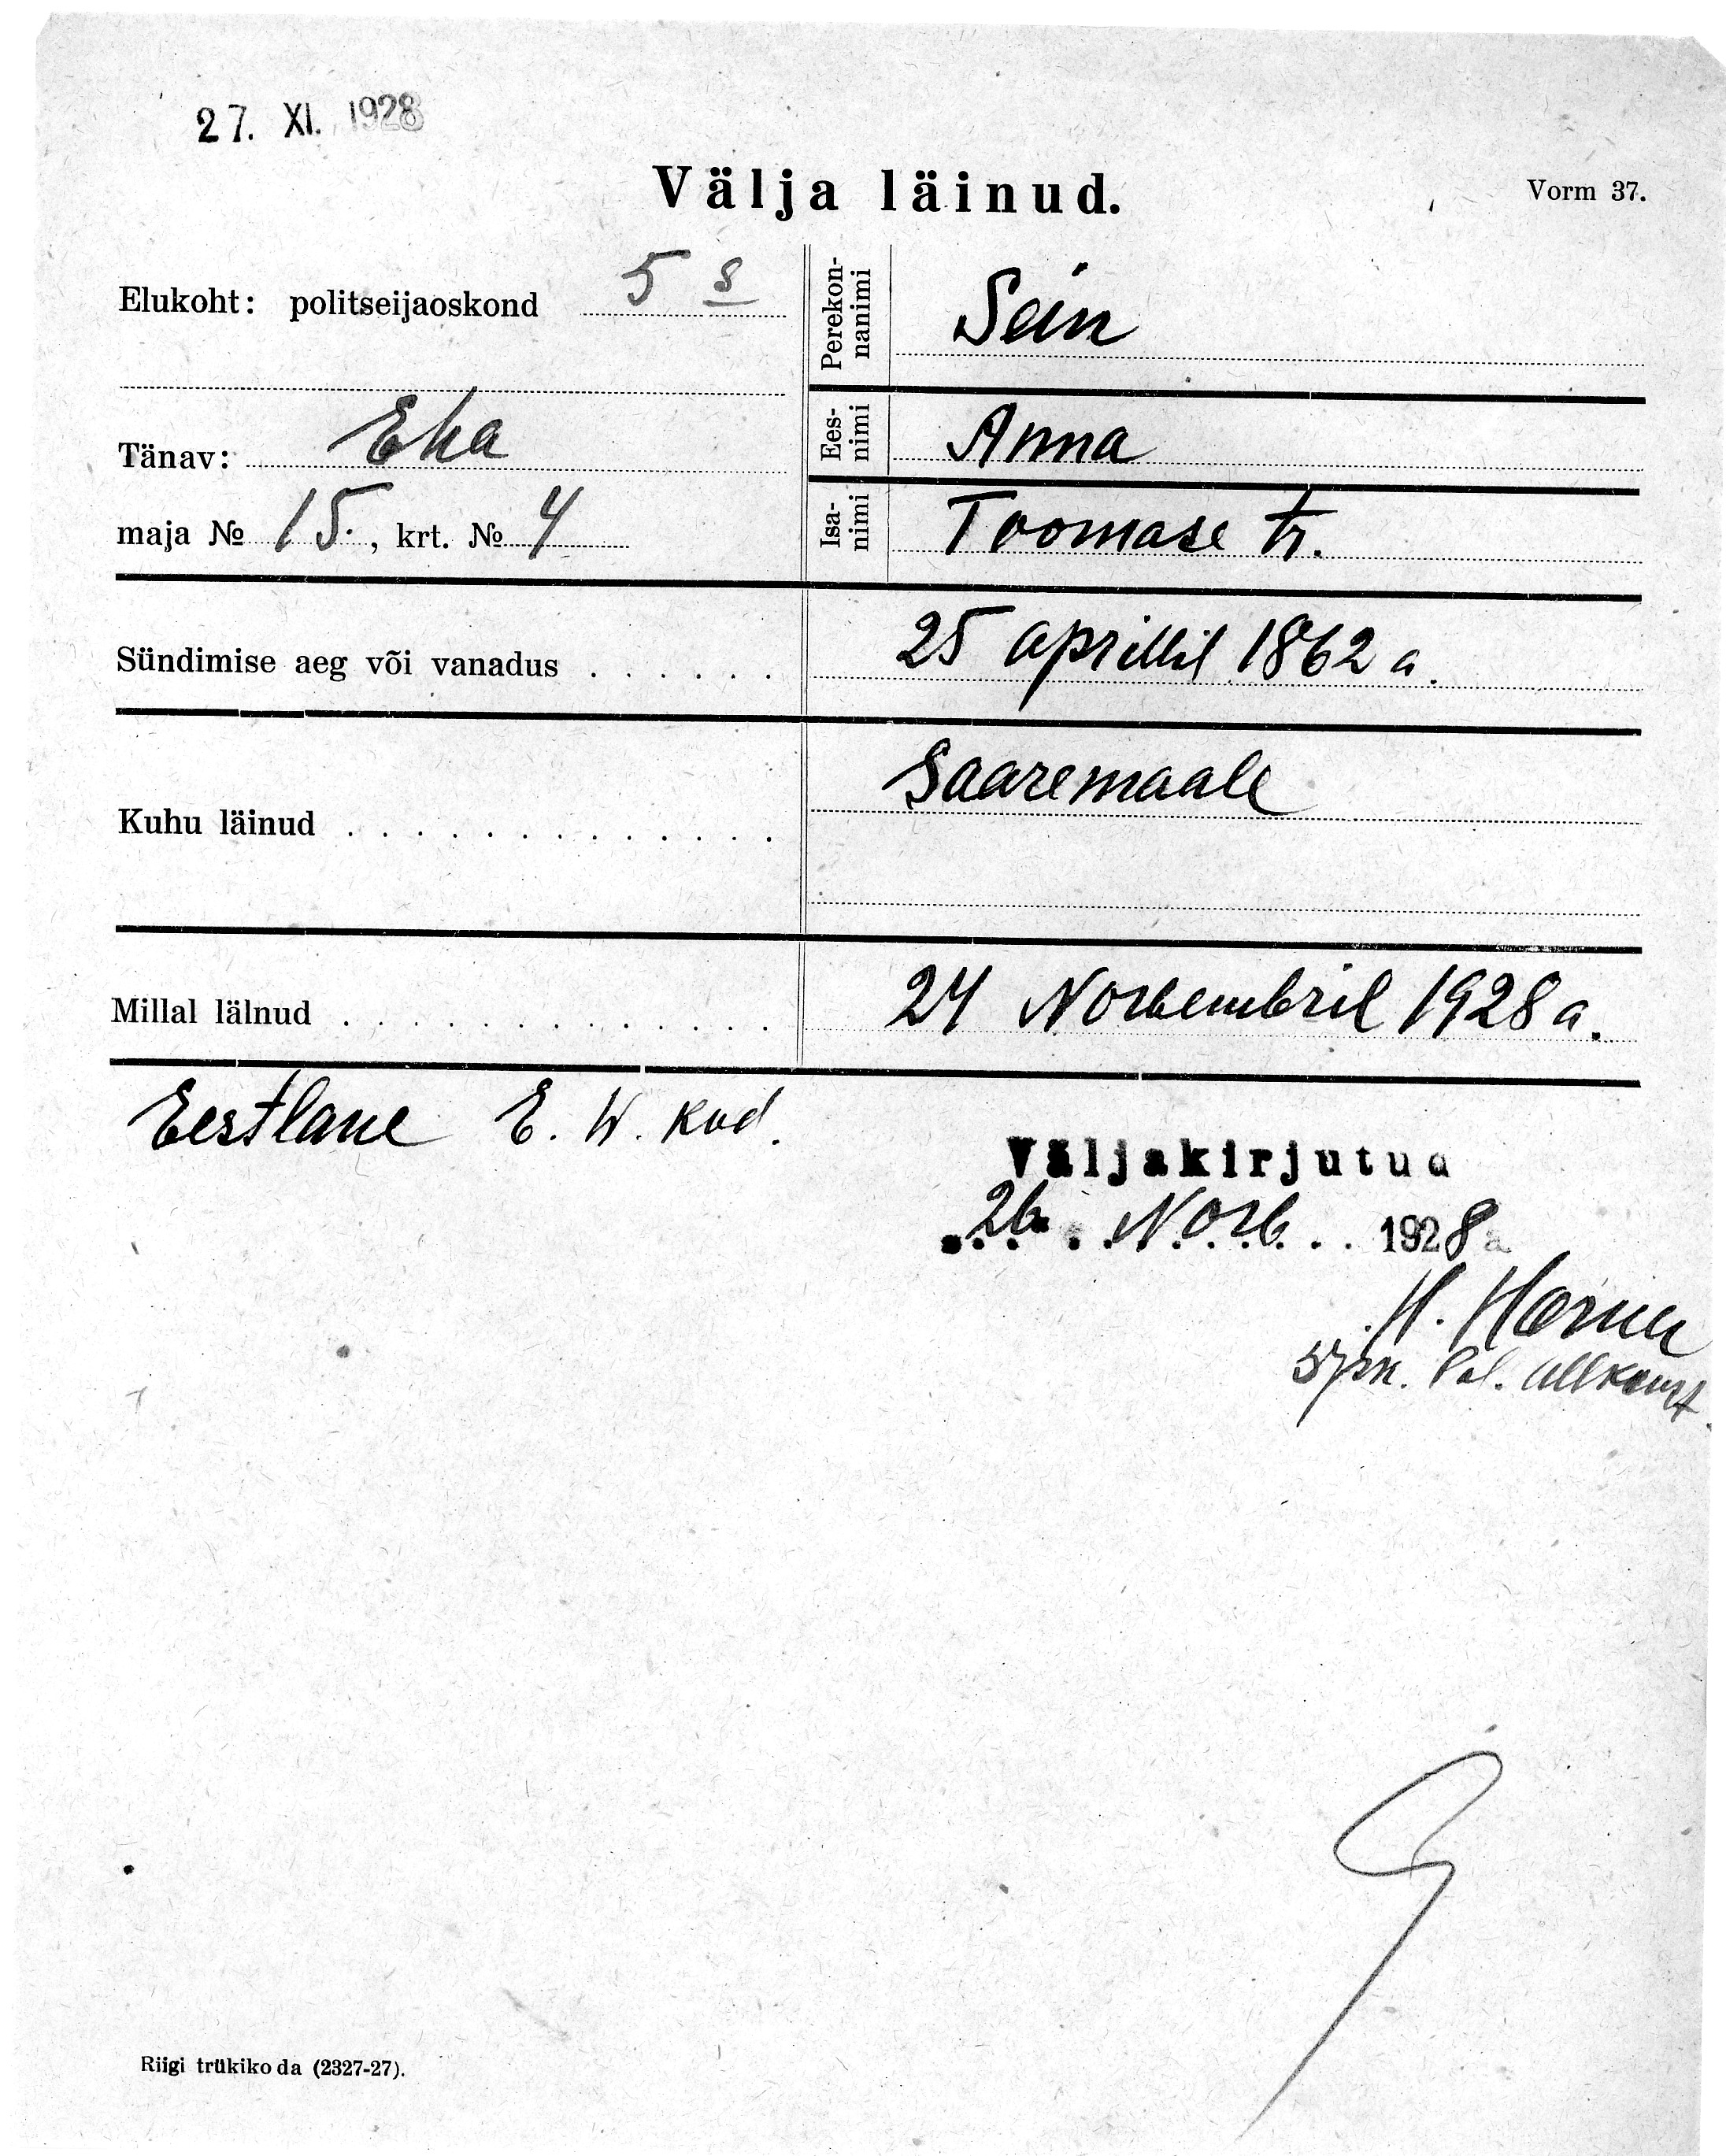 27. XI. 1928
Välja läinud.
Vorm 37.
Elukoht: politseijaoskond 5 s
Tänav: Eha
maja № 15., krt. № 4
Perekon-
nanimi
Sein
Ees-
nimi
Anna
Isa-
nimi
Toomase tr.
Sündimise aeg või vanadus . . . . . . 25 aprillil 1862 a.
Kuhu läinud . . . . . . . . . . . . . Saaremaale
Millal läinud . . . . . . . . . . . . . 24 Novembril 1928 a.
Eestlane E. W. kod.
Väljakirjutud
26. Nov. 1928 a
H.
Pol.
Riigi trükikoda (2327-27).